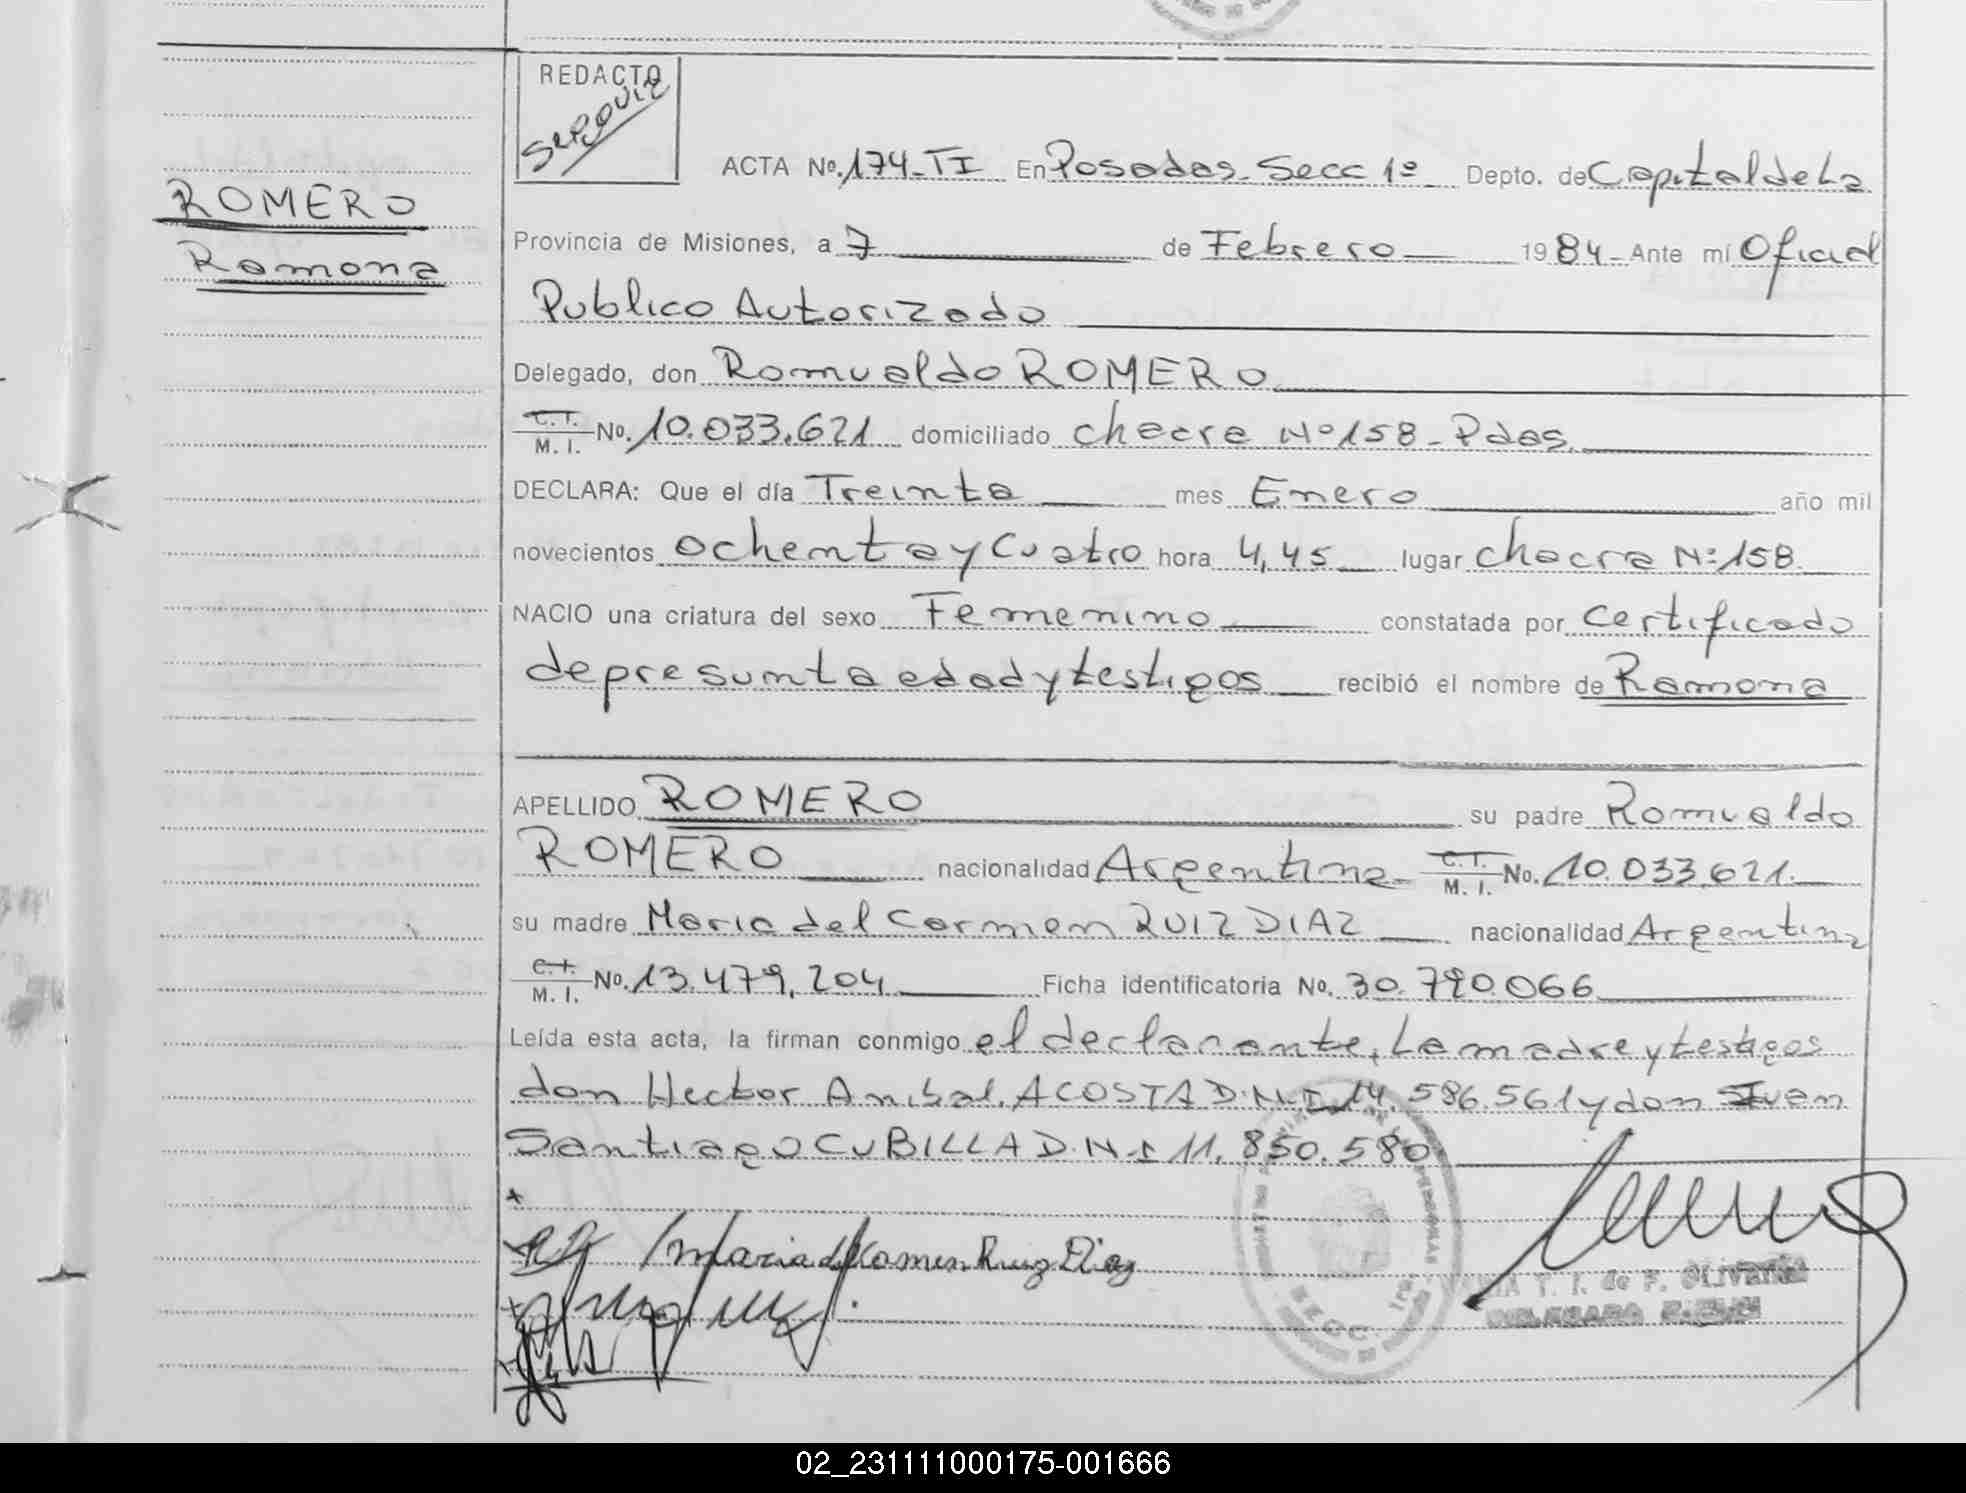 REDACTO
SERQUIZ
ROMERO
Ramona
ACTA No. 174-TI En Posadas-Secc 1º Depto. de Capital de La
Provincia de Misiones, a 7 de Febrero 1984- Ante mí Oficial
Publico Autorizado
Delegado, don Romualdo ROMERO
C.I. M. I. No. 10.033.621 domiciliado chacra Nº 158- Pdas.
DECLARA: Que el día Treinta mes Enero año mil
novecientos Ochenta y Cuatro hora 4,45 lugar chacra Nº 158.
NACIO una criatura del sexo Femenino constatada por certificado
de presunta edad y testigos recibió el nombre de Ramona
APELLIDO ROMERO su padre Romualdo
ROMERO nacionalidad Argentina- C.I. M. I. No. 10.033.621.
su madre Maria del Carmen RUIZ DIAZ nacionalidad Argentina
C.I. M. I. No. 13.479.204 Ficha identificatoria No. 30.790.066
Leída esta acta, la firman conmigo el declarante, La madre y testigos
don Hector Anibal ACOSTA D.N.I. 14.586.561 y don Ivan
Santiago CUBILLA D.N.I 11.850.580
Maria del Carmen Ruiz Diaz
T. I. de F. OLIVEIRA
DELEGADA
02_231111000175-001666